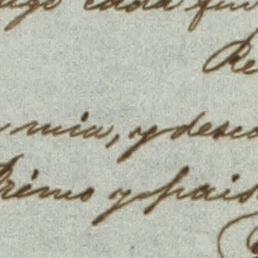 cada
Re
mia, y deseo
Primo y pais